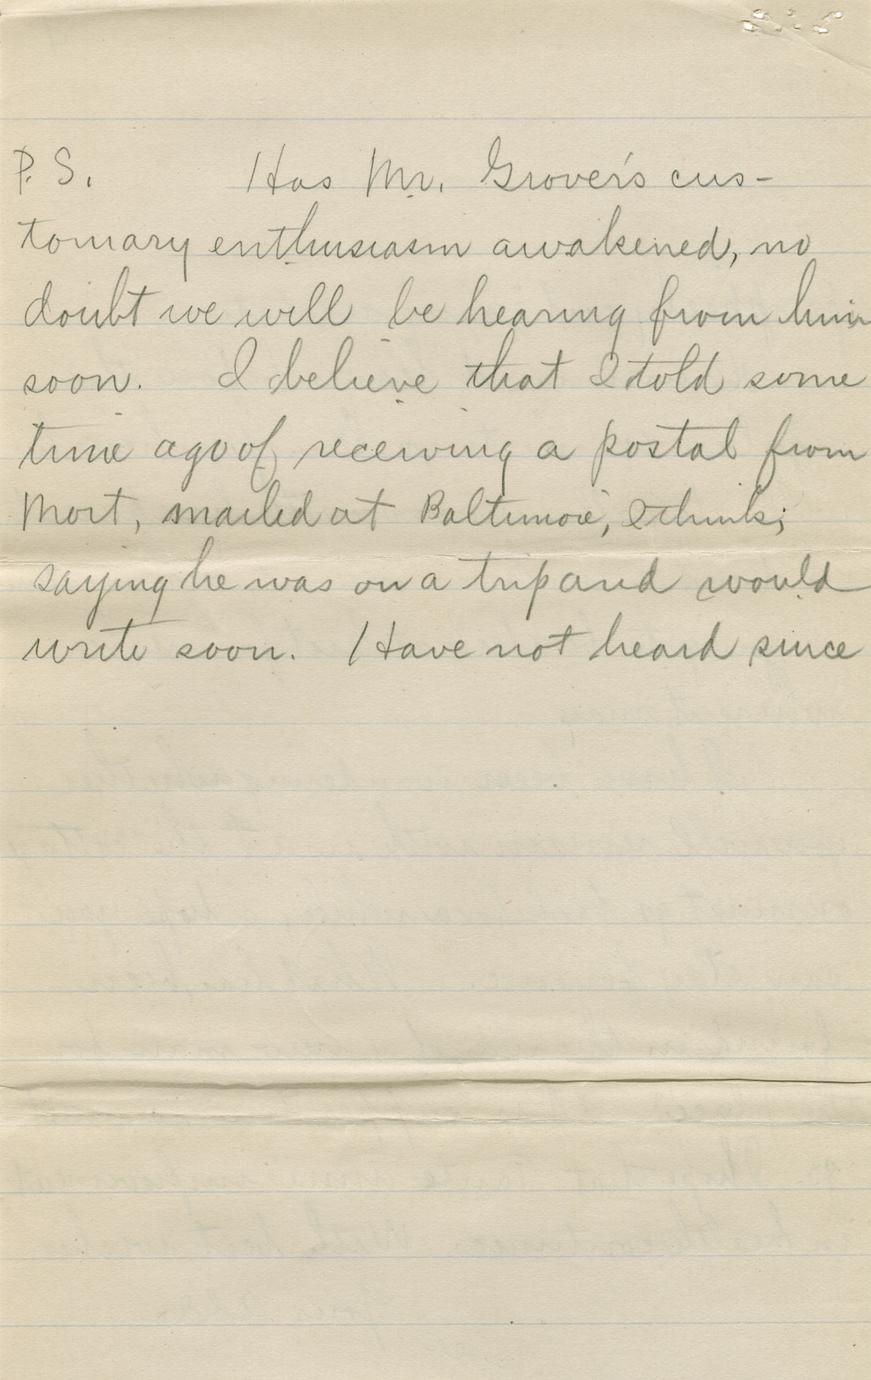 P. S. Has Mr. Grover's cus-
tomary enthusiasm awakened, no
doubt we will be hearing from him
soon. I believe that I told some
time ago of receiving a postal from
Mort, mailed at Baltimore, I think;
saying he was on a trip and would
write soon. Have not heard since